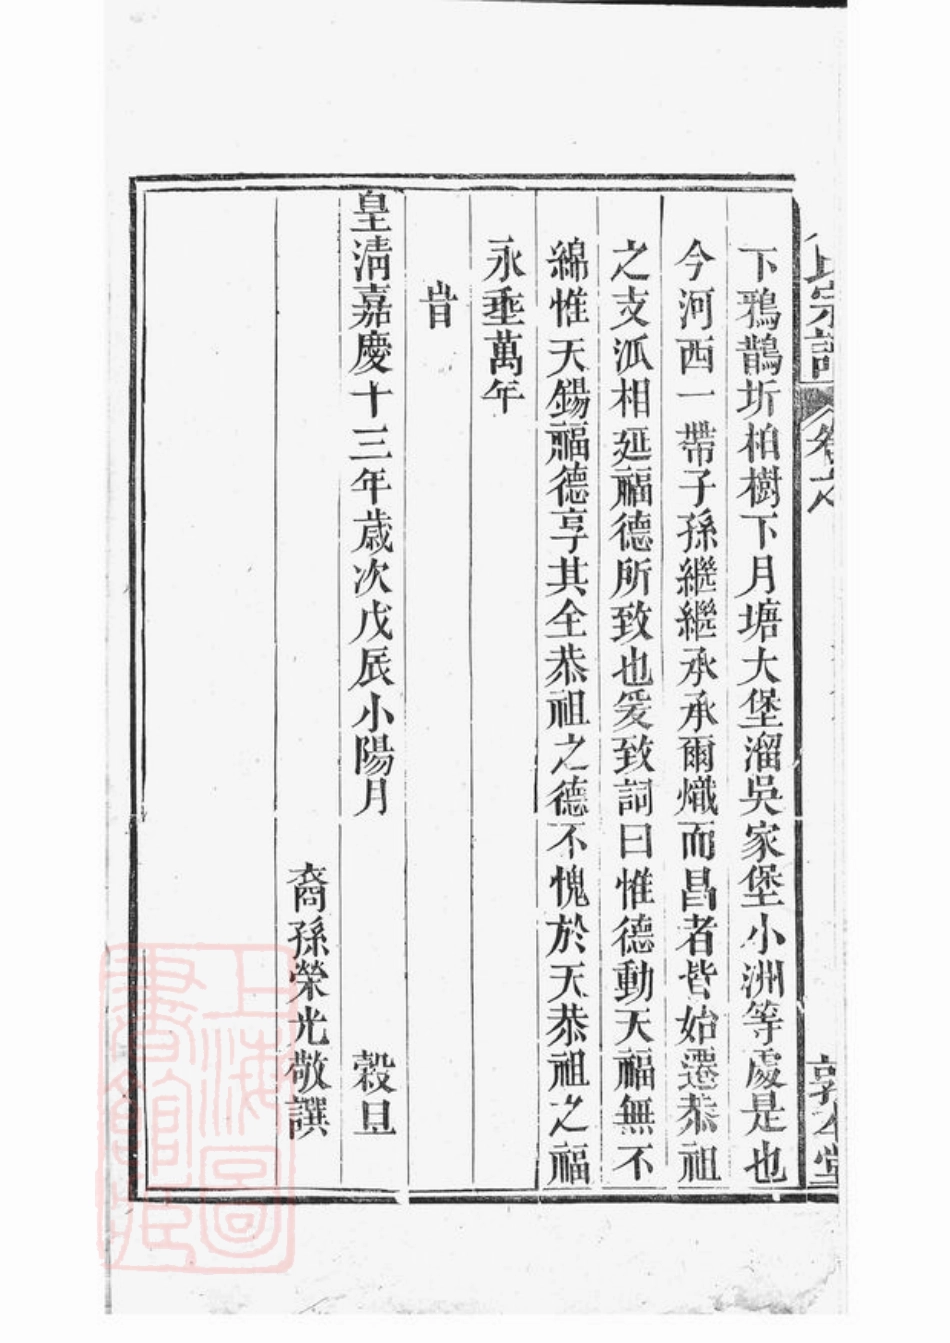 氏宗譜
卷之
敦本堂
下鴉鵲圻柏樹下月塘大堡溜吳家堡小洲等處是也
今河西一帶子孫繼繼承承爾熾而昌者皆始遷恭祖
之支派相延福德所致也爰致詞曰惟德動天福無不
綿惟天錫福德享其全恭祖之德不愧於天恭祖之福
永垂萬年
旹
皇淸嘉慶十三年歲次戊辰小陽月 穀旦
裔孫榮光敬譔
上海圖書館藏